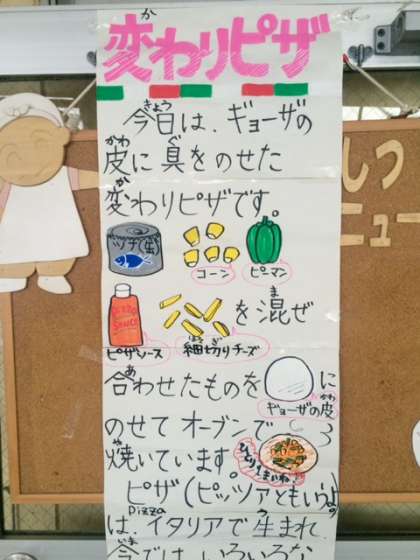 変わりピザ
今日は、ギョーザの
皮に具をのせた
変わりピザです。
ツナ缶
コーン
ピーマン
ピザソース
細切りチーズ
を混ぜ
合わせたものを
ギョーザの皮
に
のせてオーブンで
焼いています。
ピザ(ピッツァともいうよ)
pizza
は、イタリアで生まれ
今では、いろいろな
しつ
ニュー